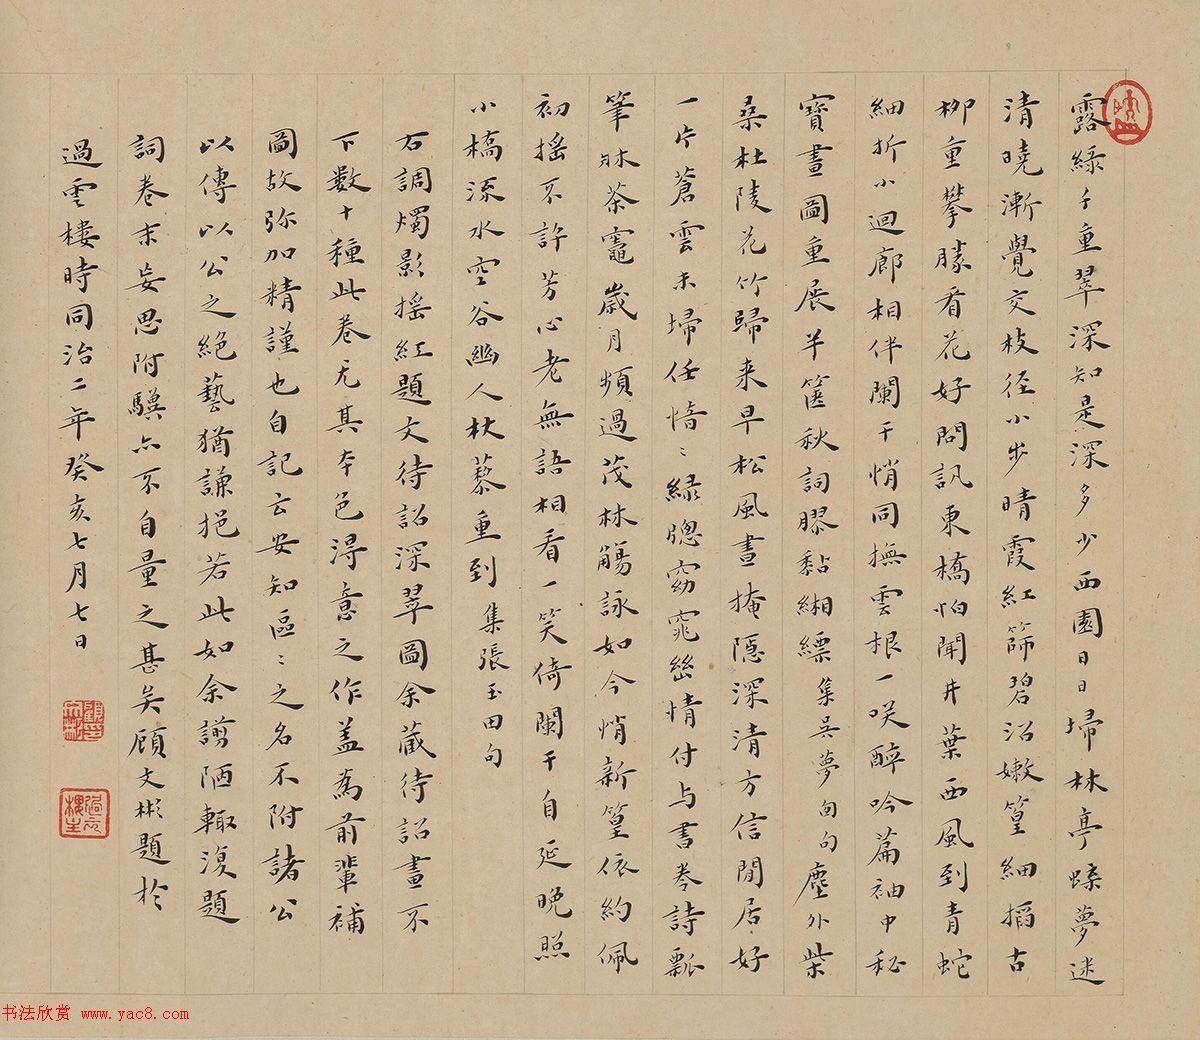 露綠千重翠深知是深多少西園日日埽林亭蜨夢迷
清曉漸覺交枝徑小步晴霞紅篩碧沼嫩篁細搯古
柳重攀勝看花好問訊東橋怕聞井葉西風到青蛇
細折小迴廊相伴闌干悄同撫雲根一咲醉吟篇袖中秘
寶晝圖重展半篋秋詞膠黏緗縹集吳夢甸句塵外柴
桑杜陵花竹歸来早松風晝掩隱深清方信閒居好
一片蒼雲未埽任愔〻綠窻窈窕幽情付与書卷詩瓢
筆牀茶竈歲月頻過茂林觴詠如今悄新篁依約佩
初搖不許芳心老無語相看一笑倚闌干自延晚照
小橋流水空谷幽人杖藜重到集張玉田句
右調燭影搖紅題文待詔深翠圖余藏待詔畫不
下數十種此卷尤其本色得意之作蓋為前輩補
圖故弥加精謹也自記云安知區〻之名不附諸公
以傳以公之絕藝猶謙挹若此如余謭陋輙復題
詞卷末妄思附驥亦不自量之甚矣顧文彬題於
過雲樓時同治二年癸亥七月七日
過雲樓主
书法欣赏 www.yac8.com